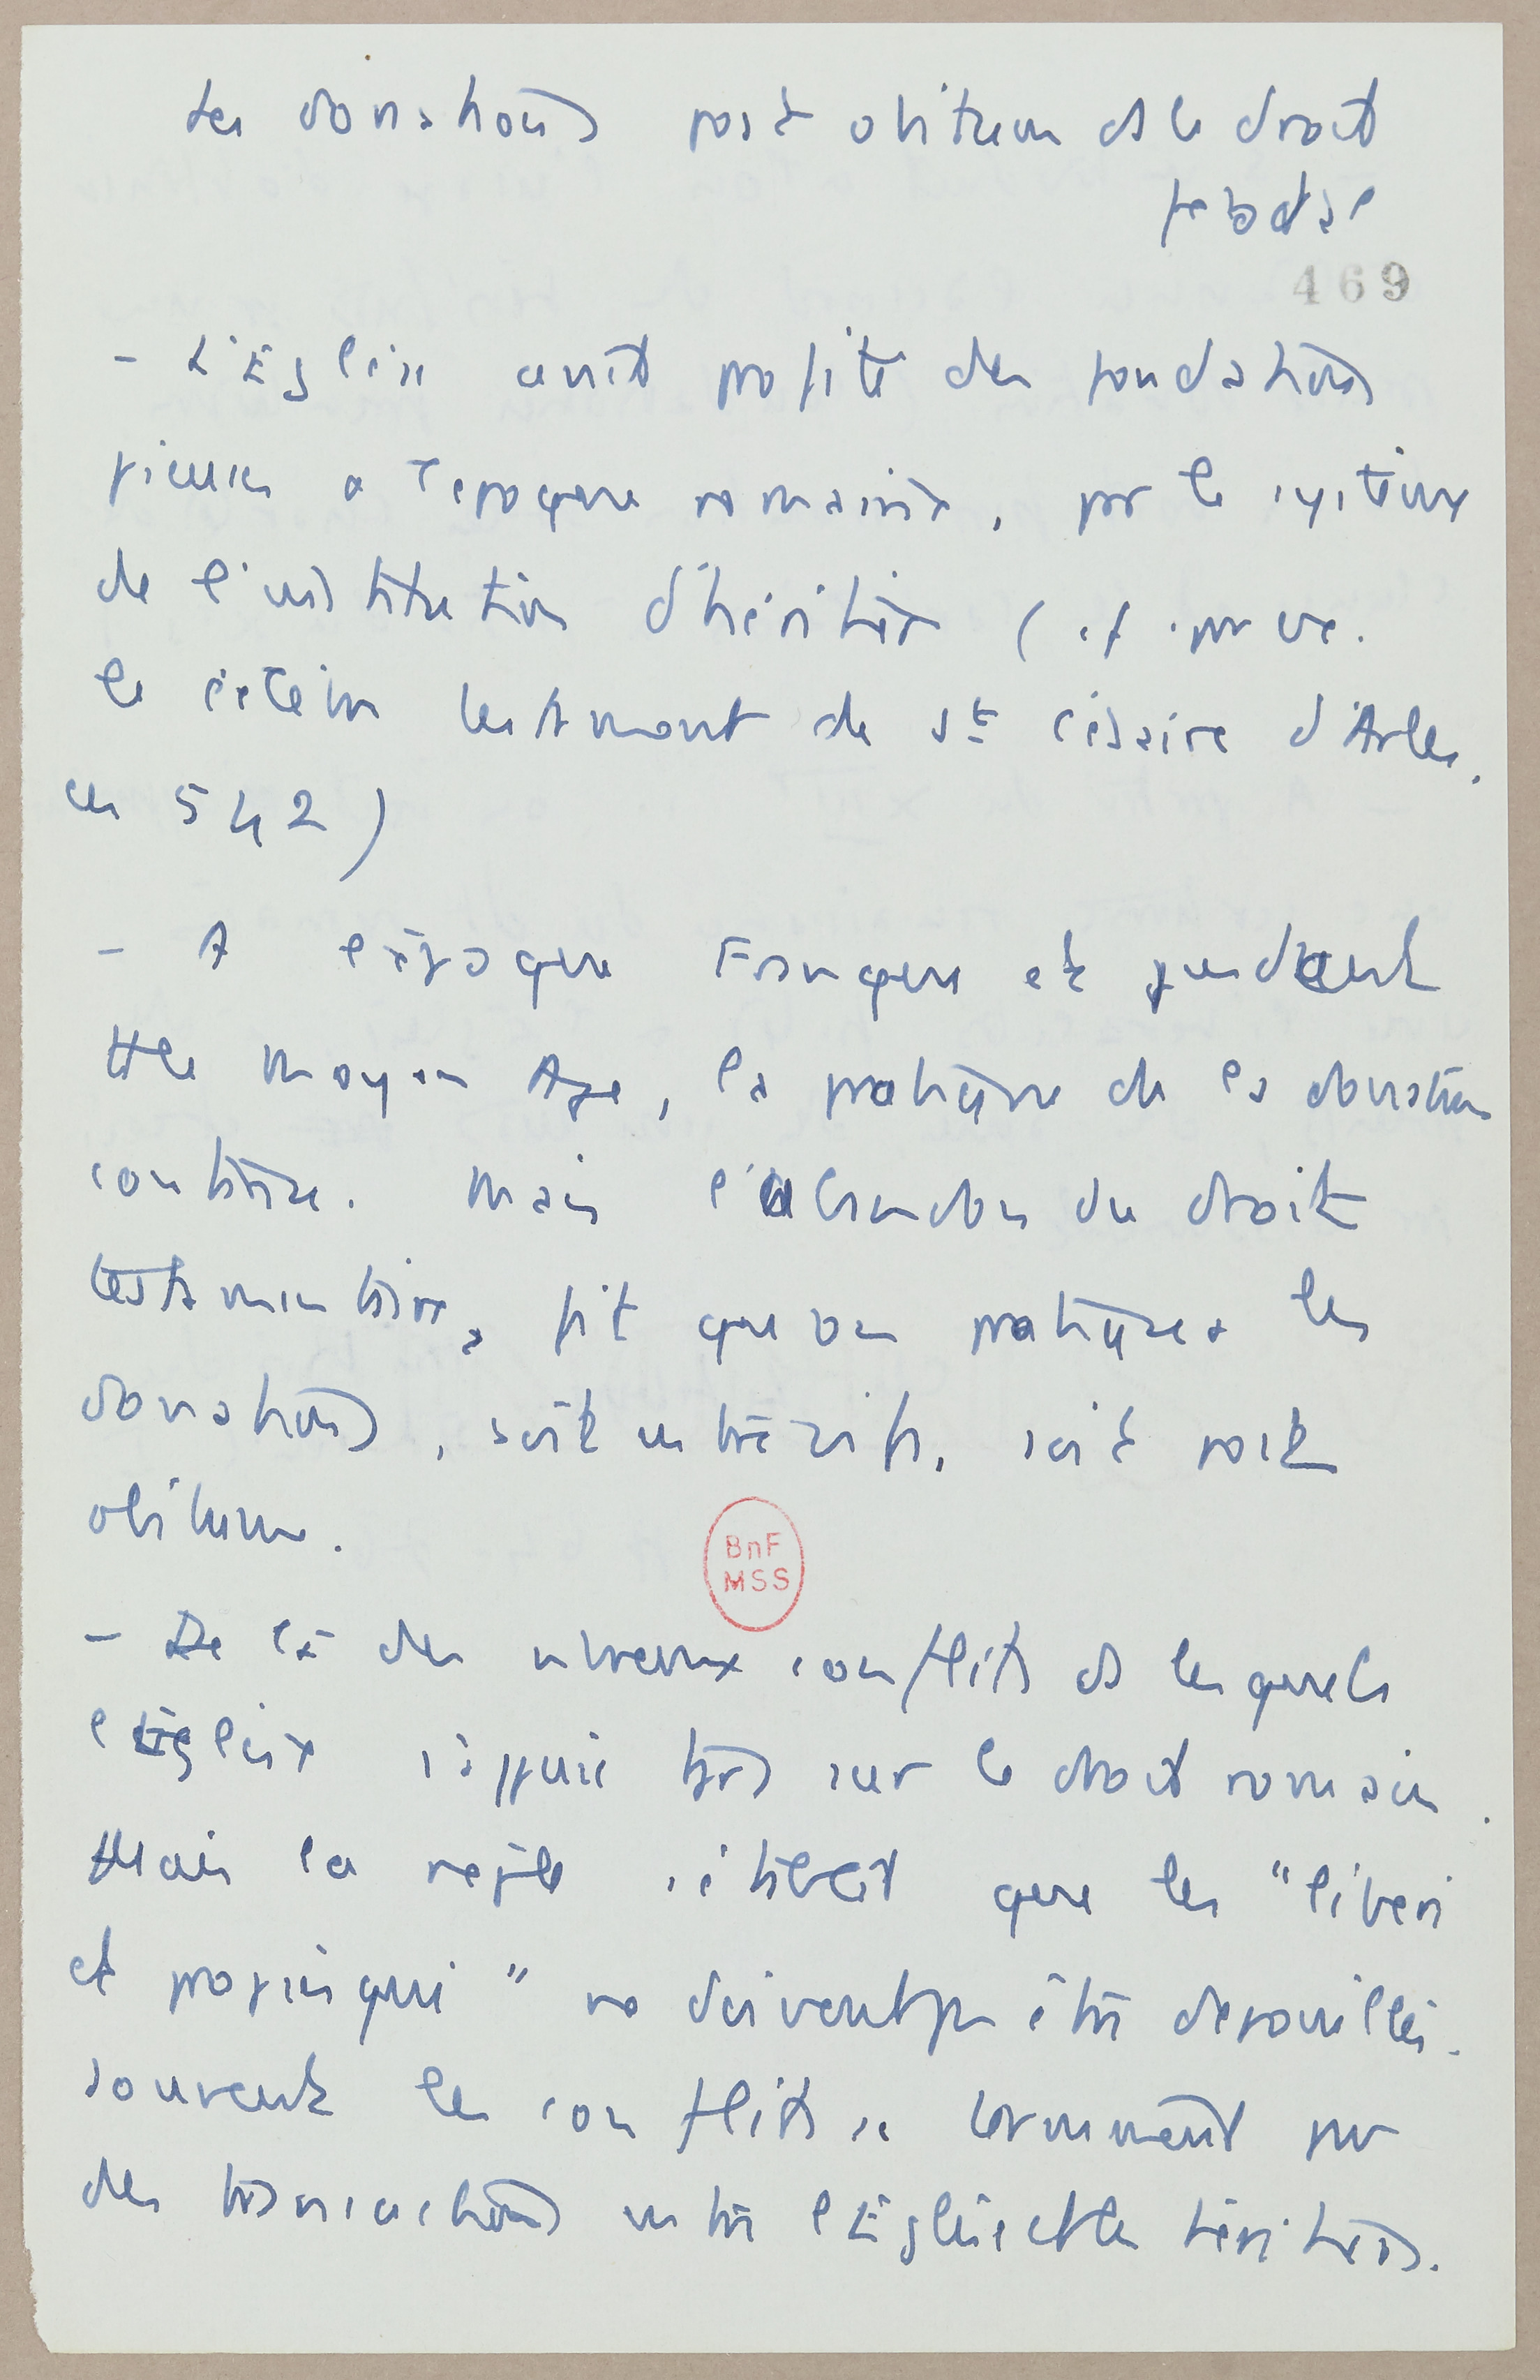 Les donations post obitum ds le droit
féodal
469
- L'Eglise avait profité des fondations
pieuses a l'epoque romaine, par le système
de l'institution d'héritier (cf
le célèbre testament de St Césaire d'Arles,
en 542)
- A l'époque Franque et pendant
tt le Moyen Age, la pratique de la donation
continue. Mais l'abandon du droit
testamentaire, fit que on pratiqua les
donations, soit entre vifs, soit post
obitum.
BnF
MSS
- De là des nbreux conflits ds lesquels
l'Eglise s'appuie tjrs sur le droit romain.
Mais la règle s'établit que les "liberi
et propinqui" ne doivent pas être depouillés.
Souvent les conflits se terminent par
des transactions entre l'Eglise et les héritiers.